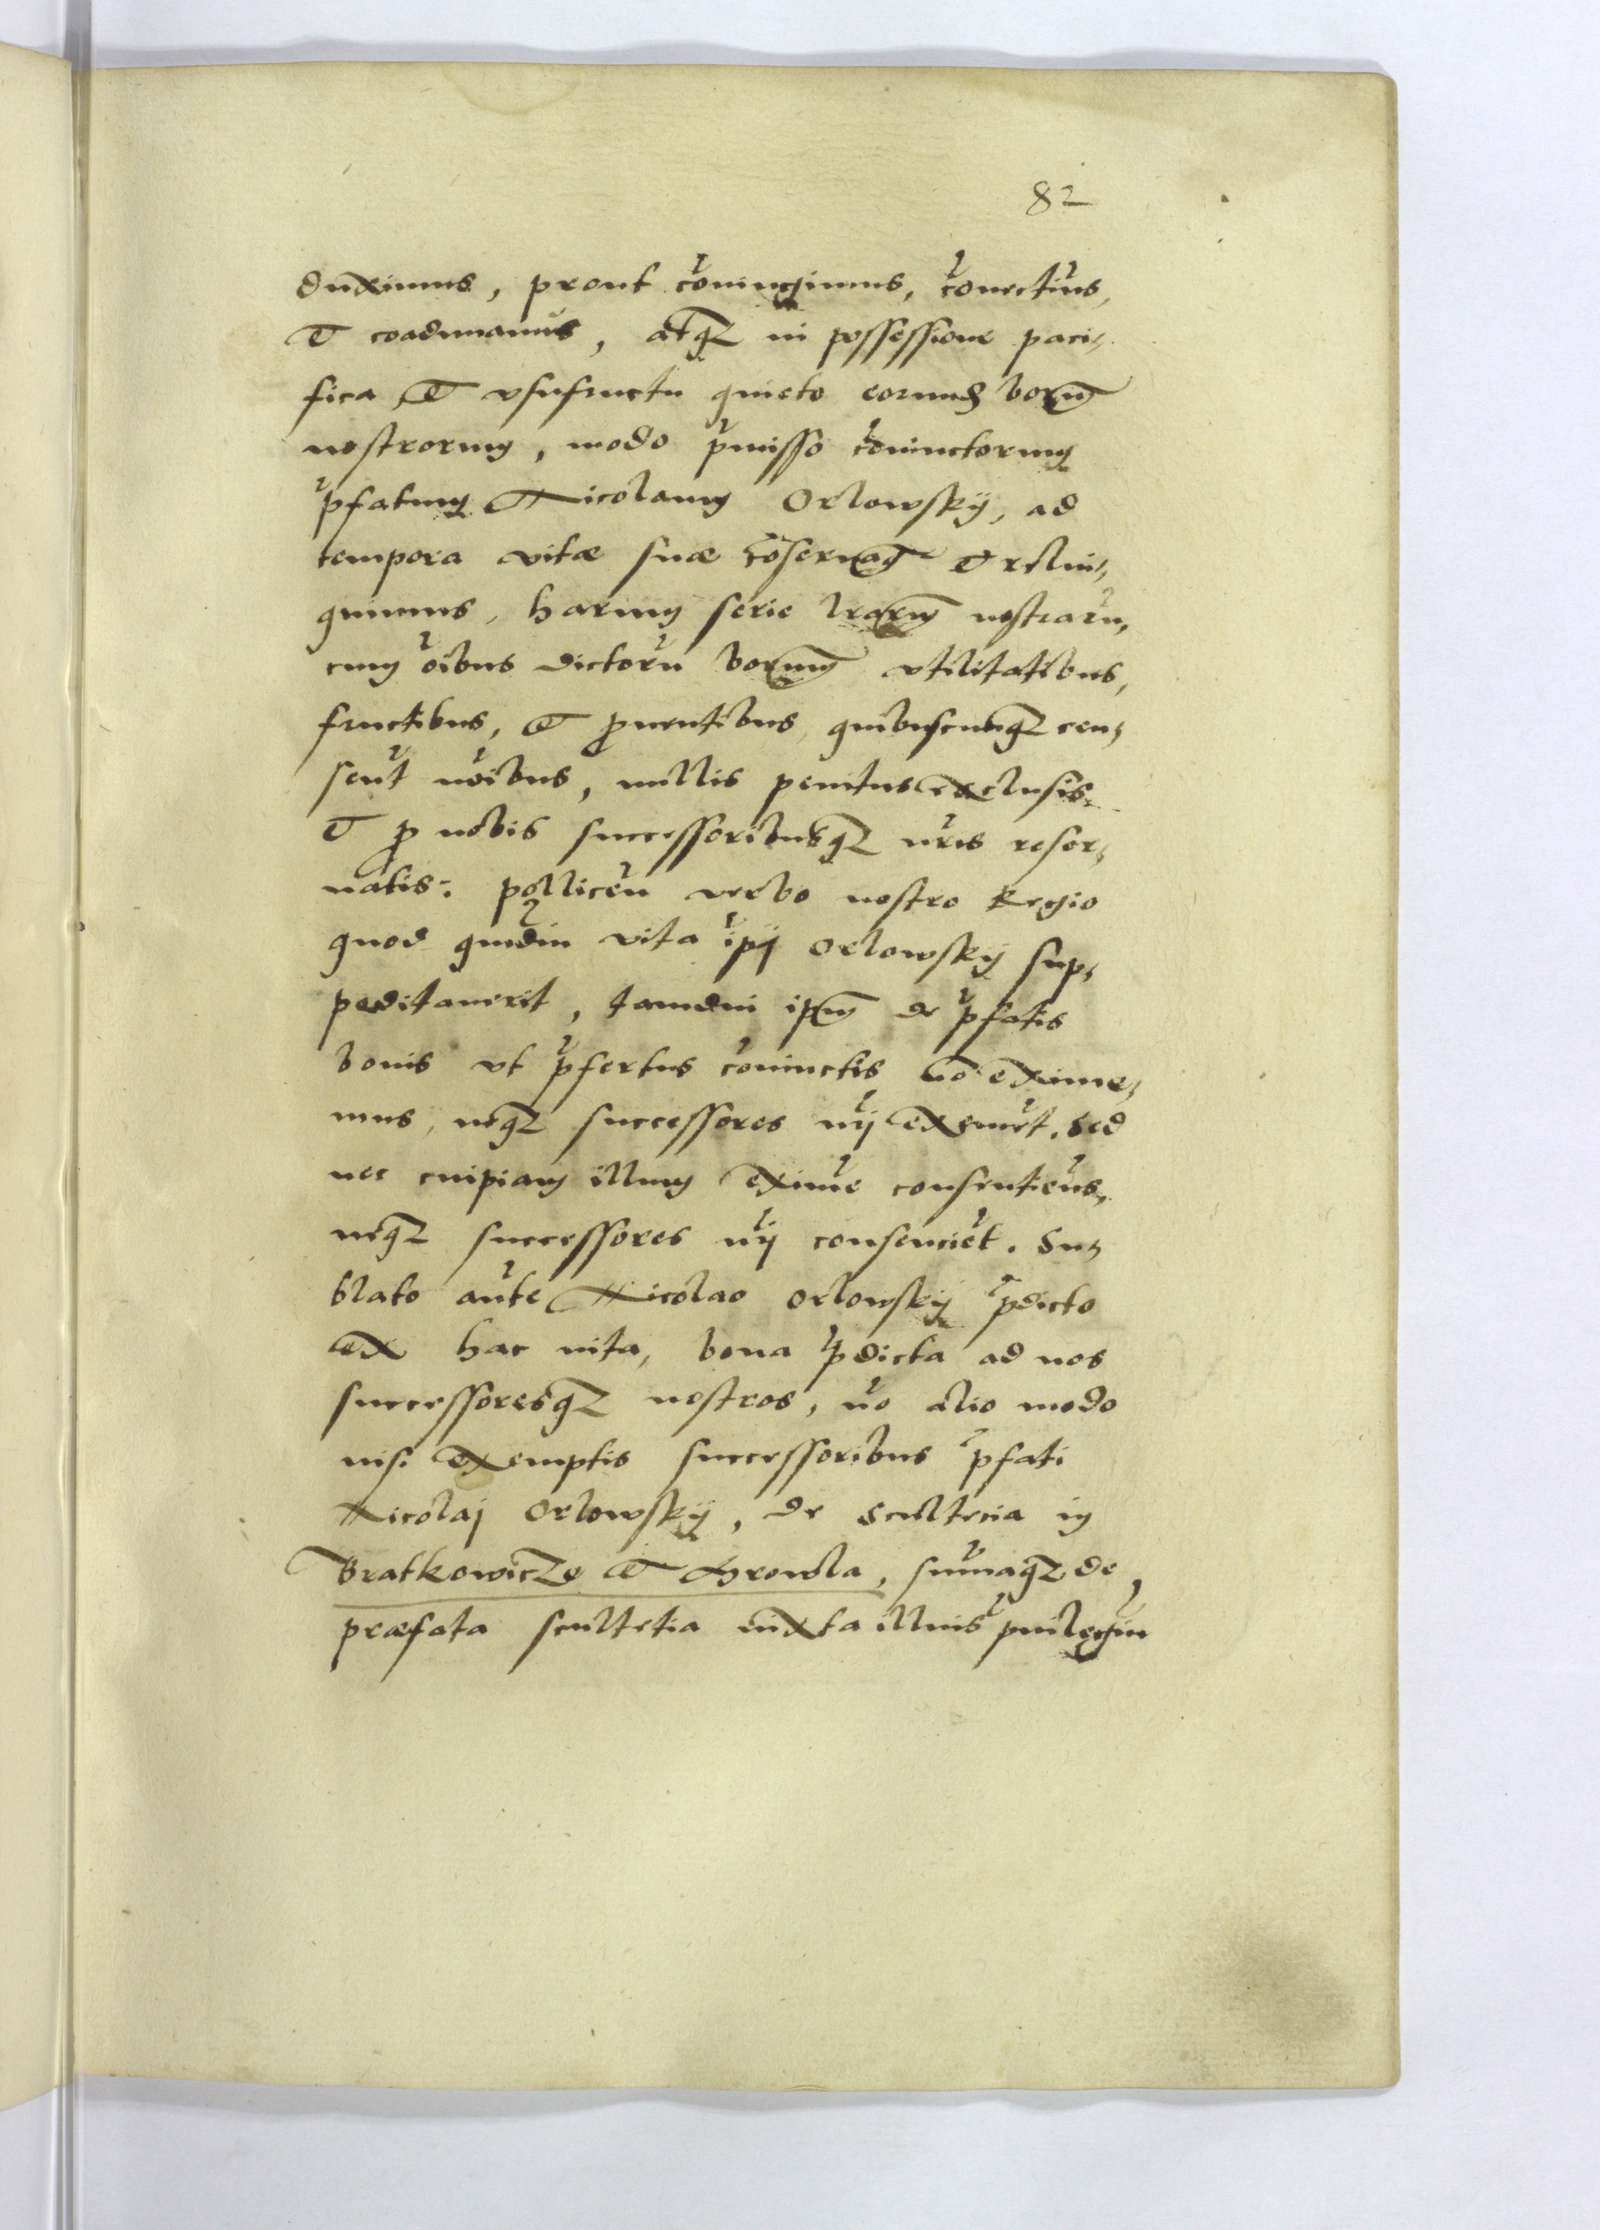 82
duximus, prout coniungimus, conectius,
et coadunamus, atqz in possessione paci,
fica et vsufructu quieto eorund bonorum
nostrorum, modo pmisso coniunctorum
pfatum Nicolaum Orlowskÿ, ad
tempora vitæ suæ coseruam et relin,
quimus, harum serie lrarum nostraru,
cum oibus dictoru bonorum vtilitatibus,
fructibus, et puentibus quibuscunqz cen,
sent noibus, nullis penitus exclusis,
et p nobis successoribusqz nris reser,
uatis: polliceu verbo nostro Regio
quod qudiu vita ipi Orlowskÿ sup,
peditauerit, tamdiu ipum de pfatis
bonis vt pfertus coniunctis no exime,
mus, neqz successores nri eximet. Sed
nec cuipiam illum eximere consentieus,
neqz successores nri consenciet. Su,
blato aute Nicolao Orlowskÿ pdicto
ex hac uita, bona pdicta ad nos
successoresqz nostros, no alio modo
nisi exemptis successoribus pfati
Nicolaj Orlowskÿ, de Scultecia in
Bratkowicze et Mrowla, sumaqz de,
præfata scultetia iuxta illius puilegiu